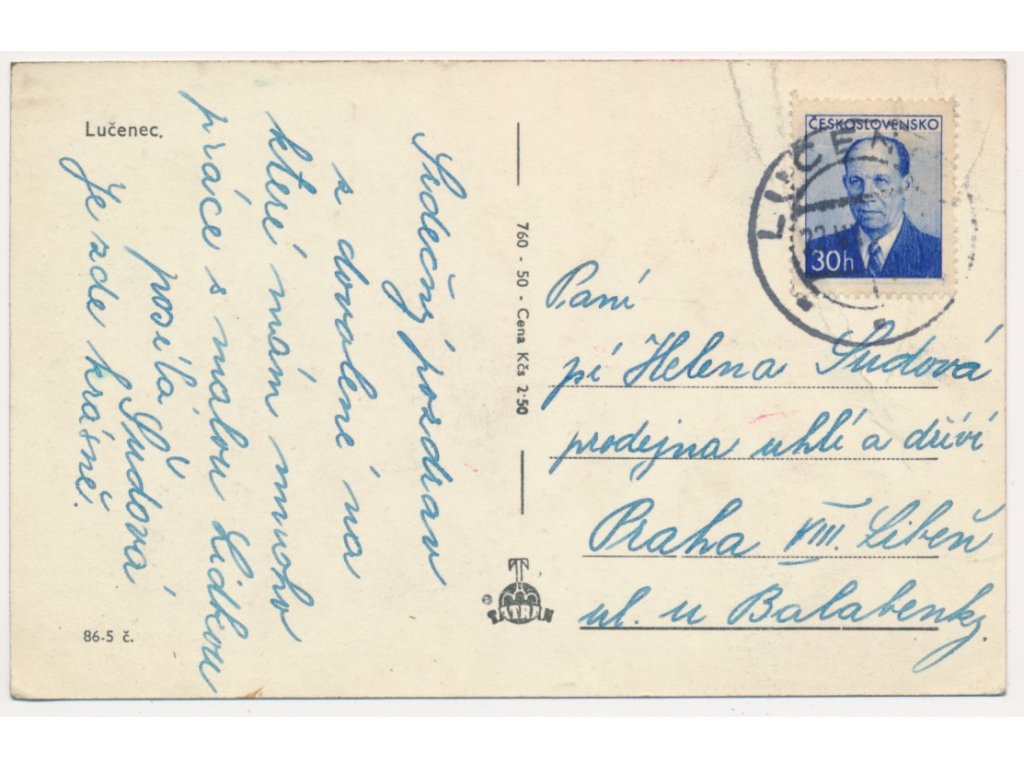 Lučenec.
Srdečný pozdrav
z dovolené na
které mám mnoho
práce s malou Lidkou
posílá Sudová
Je zde krásně.
86-5 č.
760 - 50 - Cena Kčs 2·50
TATRAN
ČESKOSLOVENSKO
30h
LUČEN
Paní
pí Helena Sudová
prodejna uhlí a dříví
Praha VIII. Libeň
ul. u Balabenky.